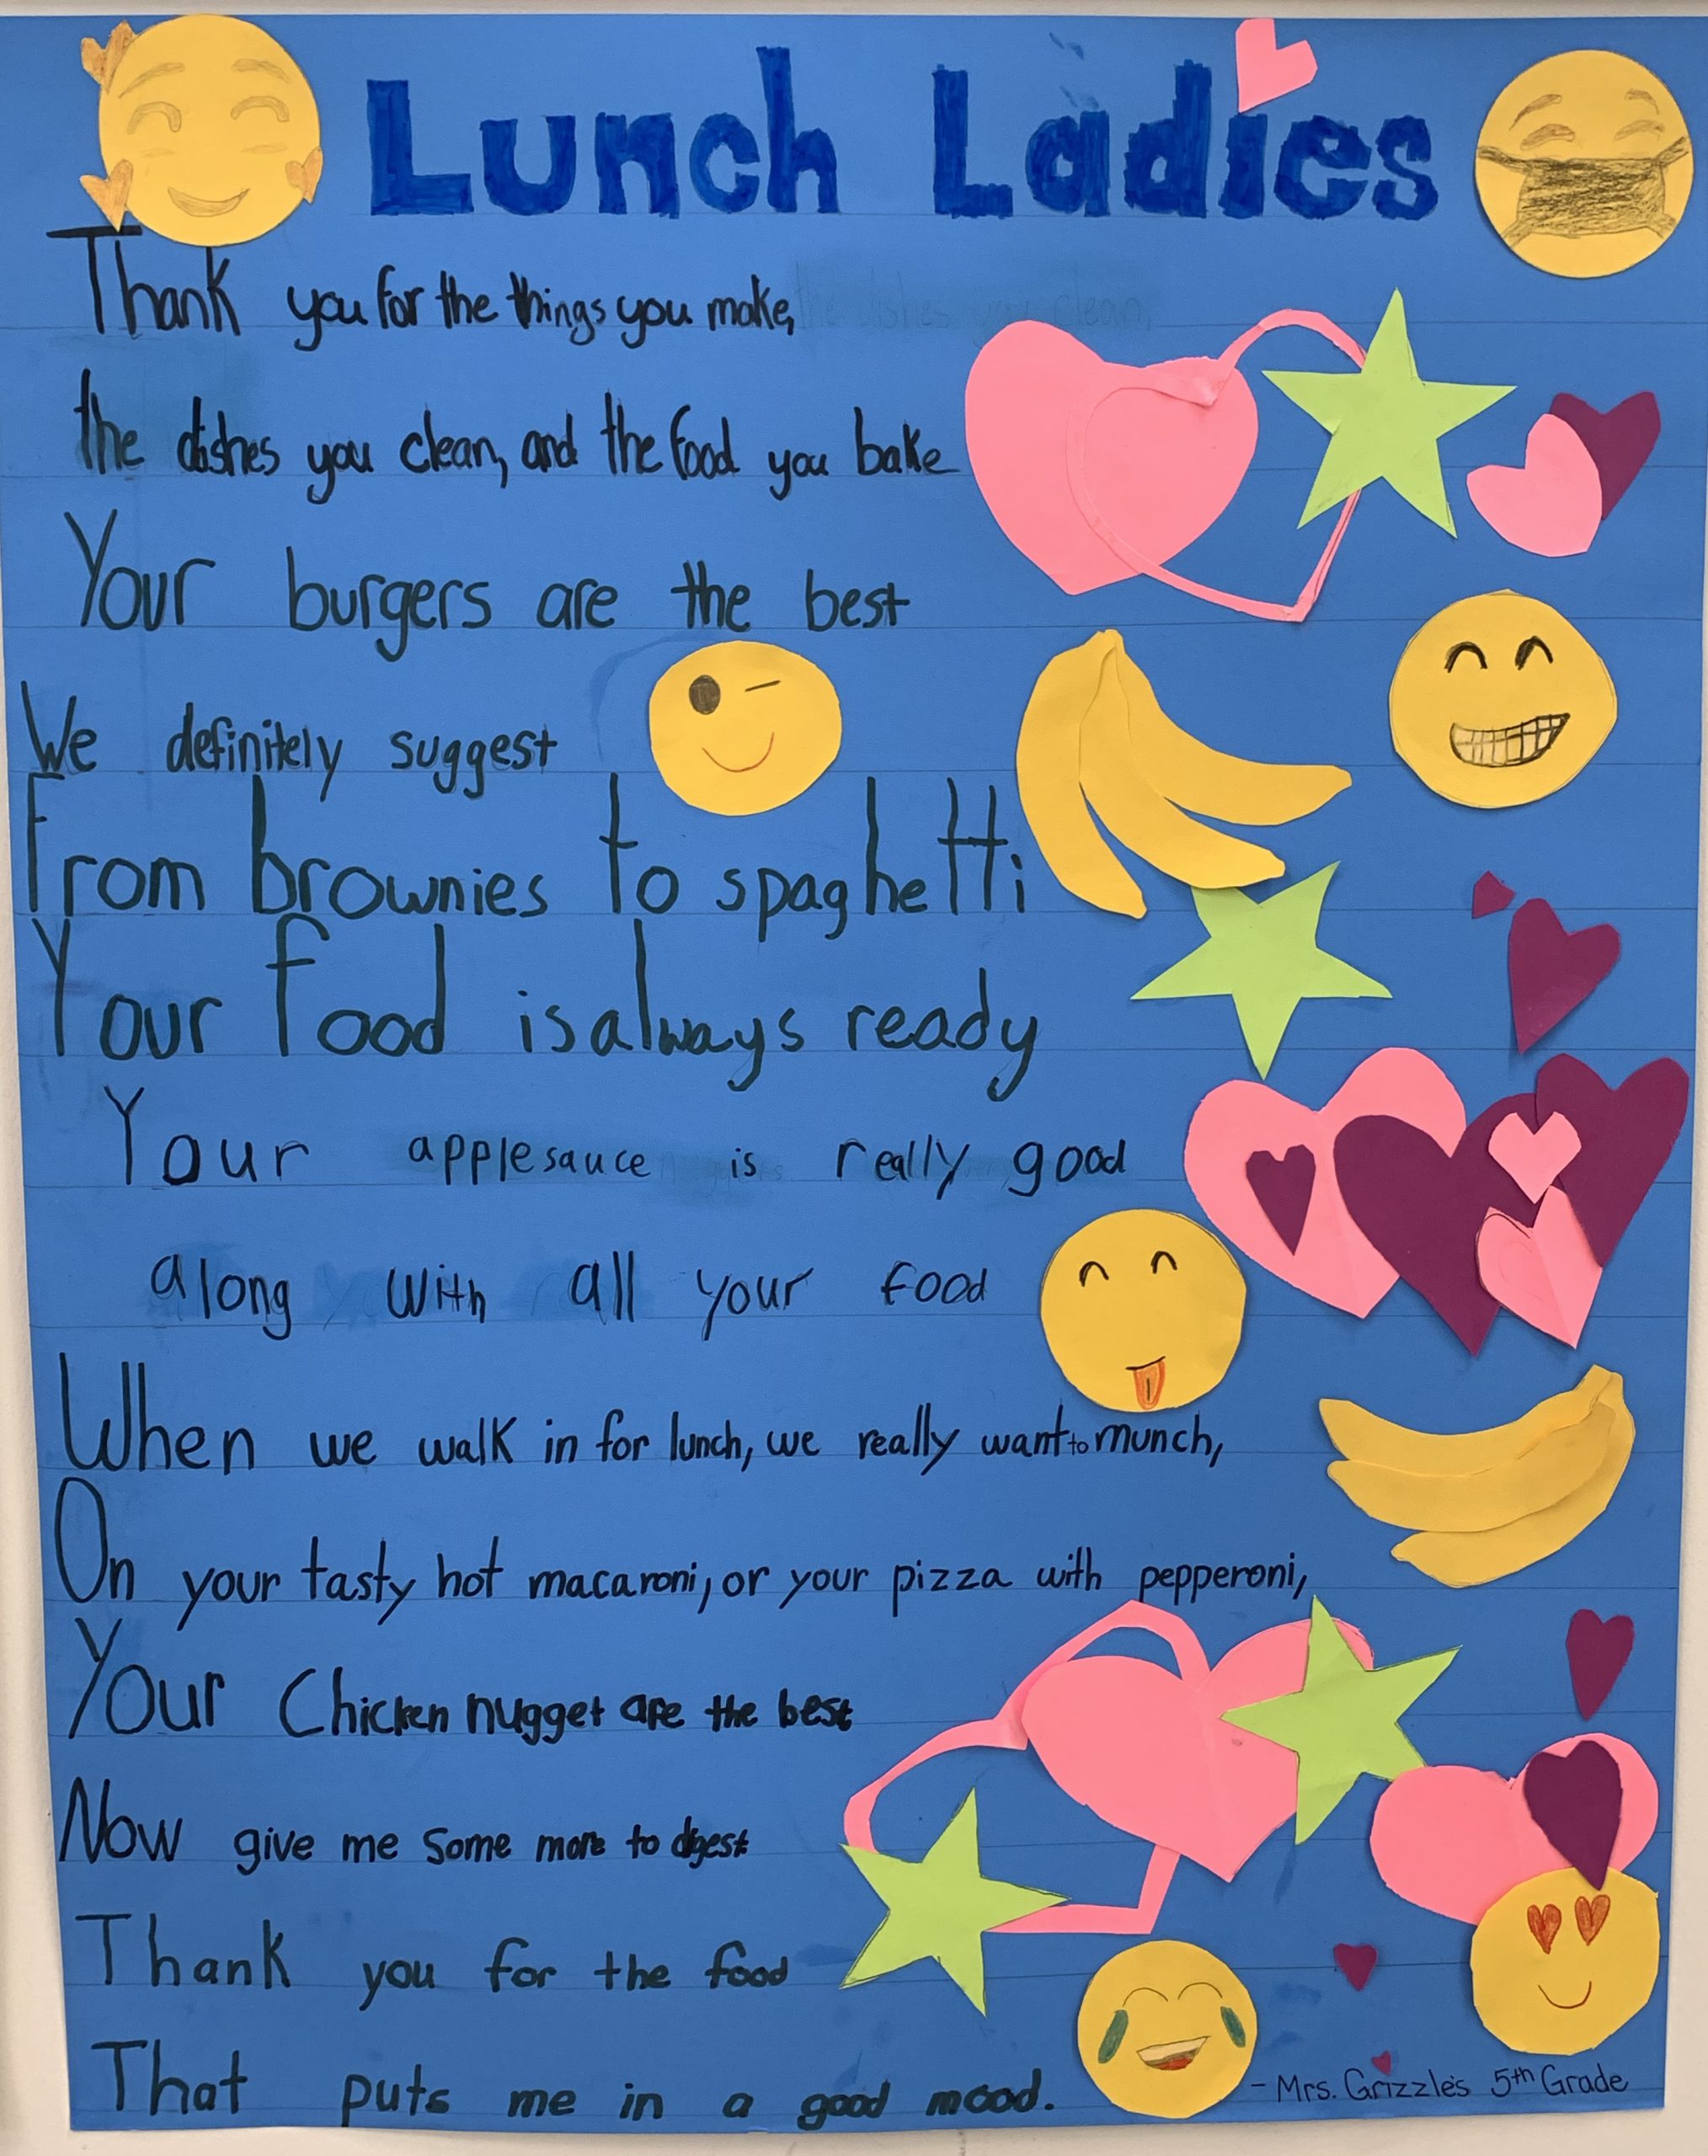 Lunch Ladies
Thank you for the things you make,
the dishes you clean, and the food you bake
Your burgers are the best
We definitely suggest
From brownies to spaghetti
Your food is always ready
Your applesauce is really good
along with all your food
When we walk in for lunch, we really want to munch,
On your tasty hot macaroni, or your pizza with pepperoni,
Your Chicken nugget are the best
Now give me some more to digest
Thank you for the food
That puts me in a good mood.
- Mrs. Grizzle's 5th Grade